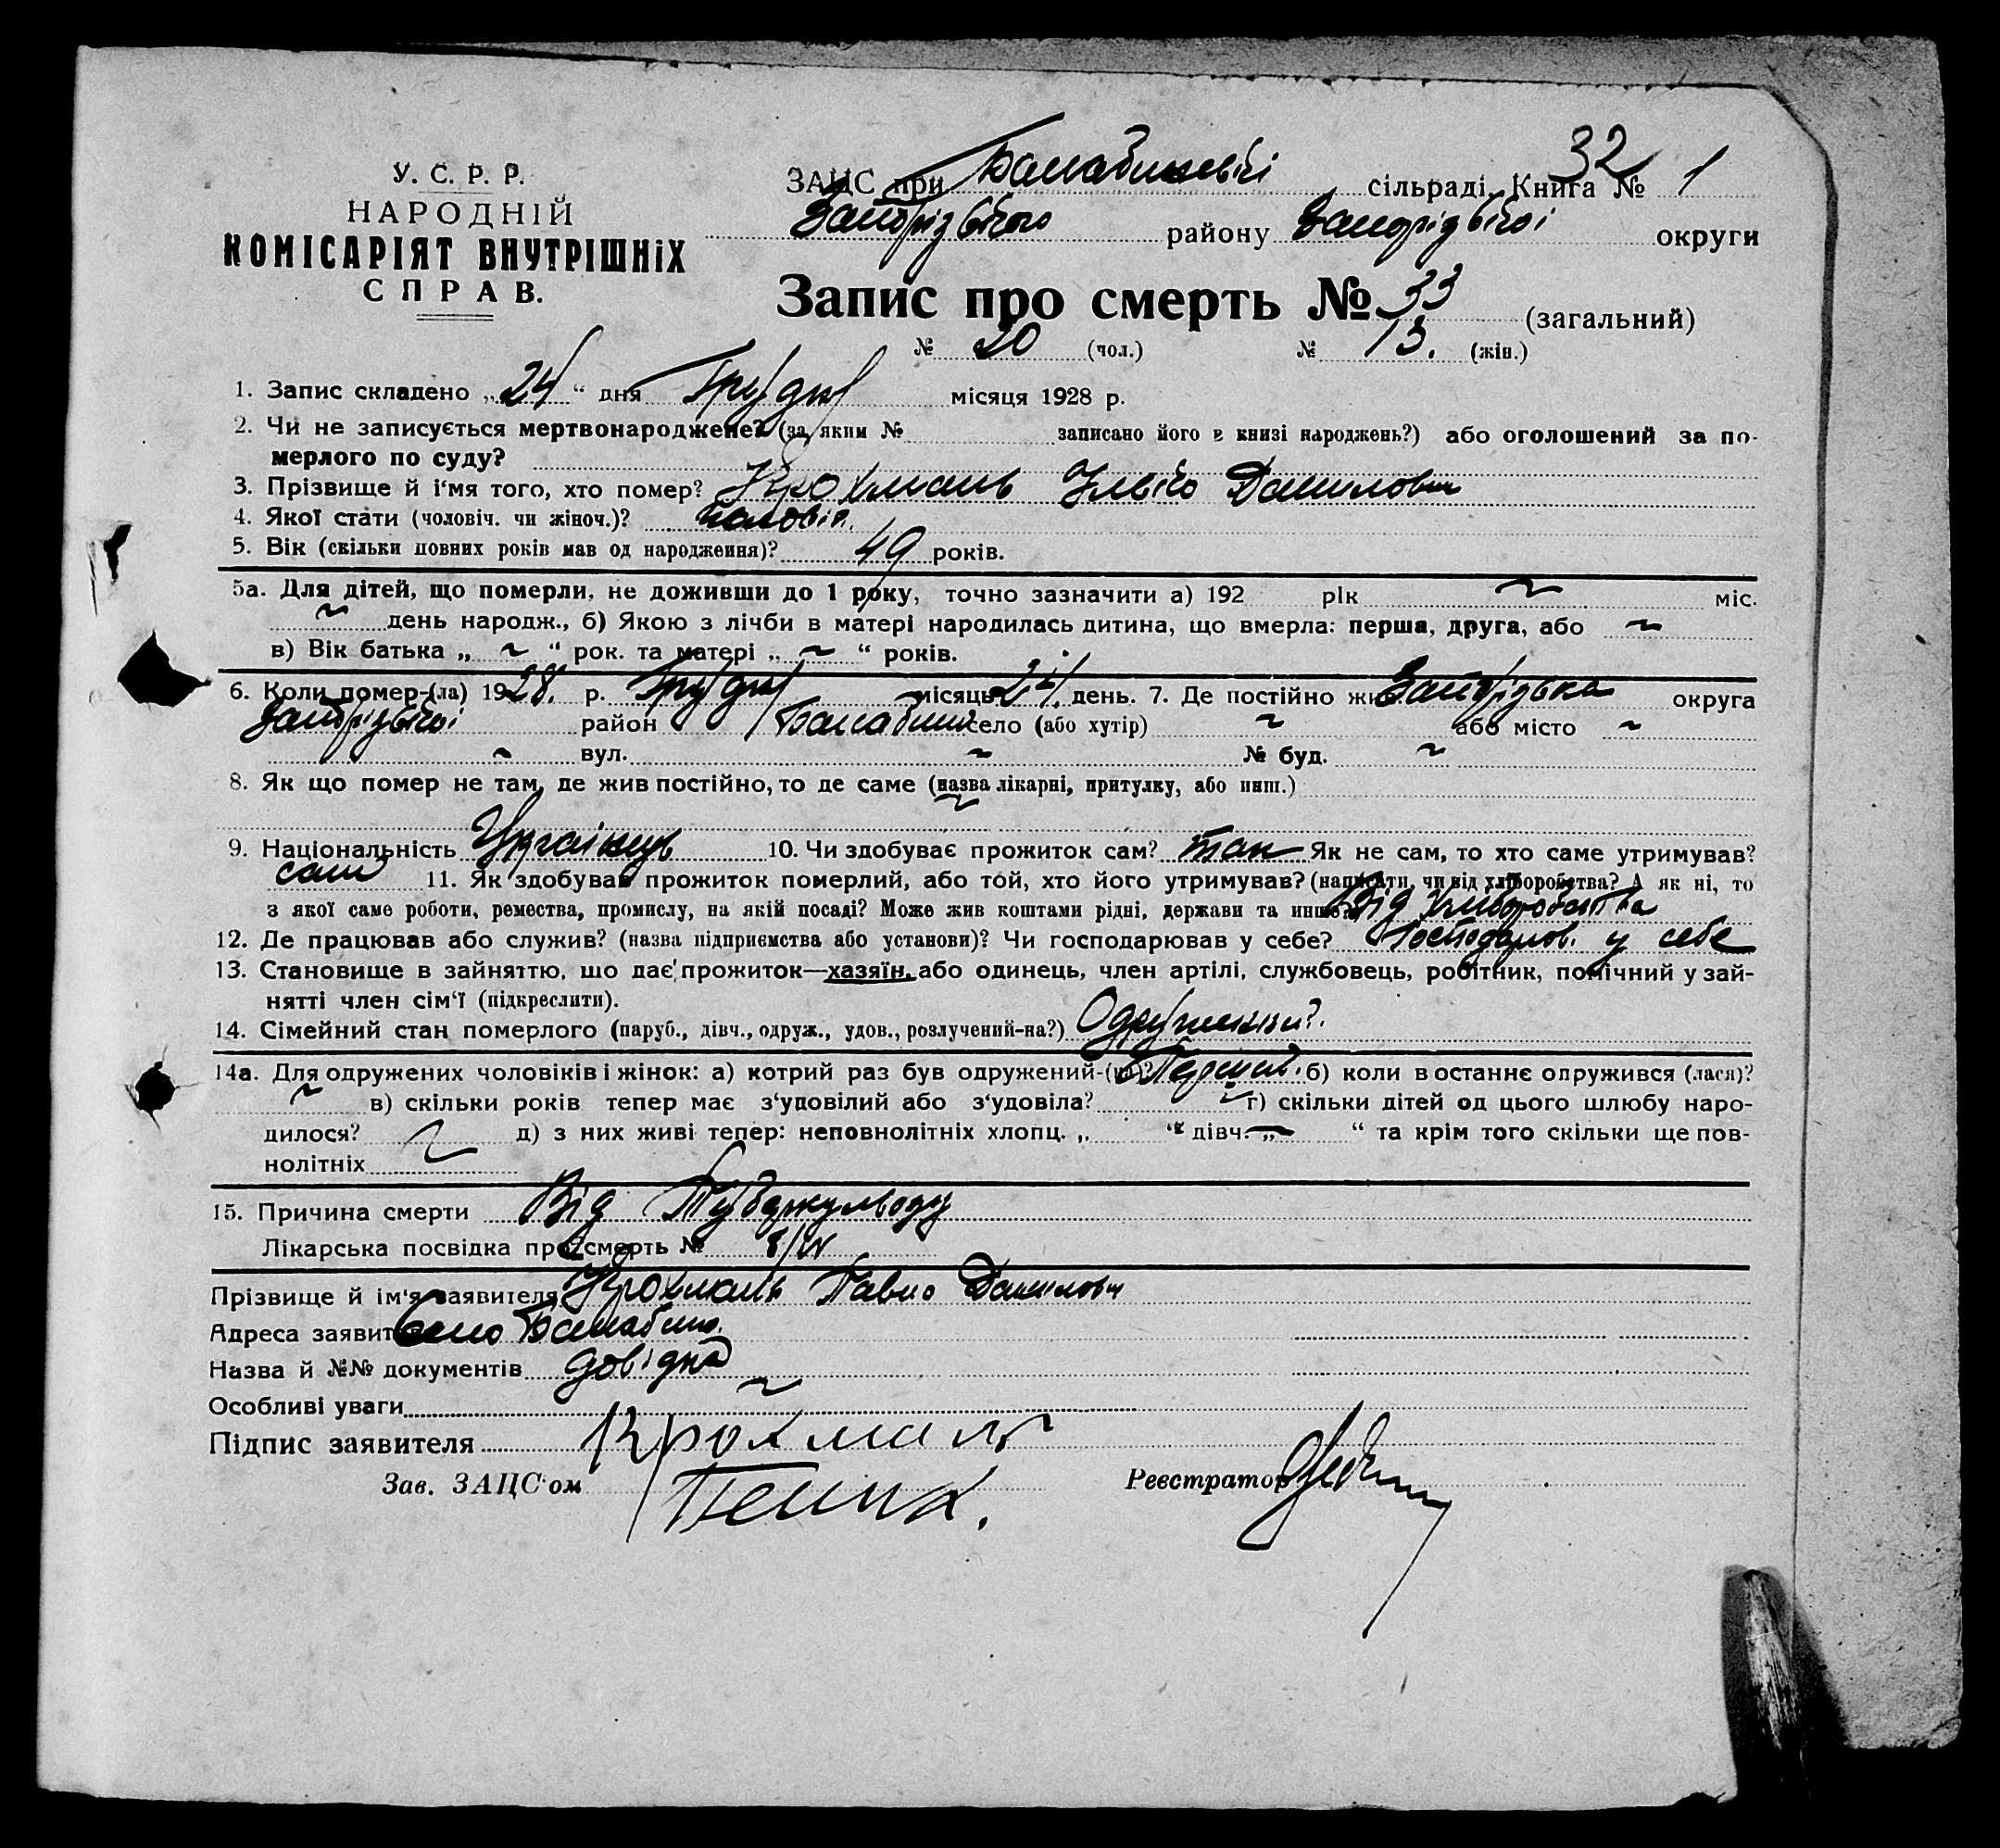 32
У. С. Р. Р.
НАРОДНІЙ
КОМІСАРІЯТ ВНУТРІШНІХ
СПРАВ.
ЗАЦС при Балабинській сільраді. Книга № 1
Запорізького району Запорізької округи
Запис про смерть № 33 (загальний)
№ 20 (чол.) № 13. (жін.)
1. Запис складено „24“ дня Грудня місяця 1928 р.
2. Чи не записується мертвонароджене? (за яким № записано його в книзі народжень?) або оголошений за по-
мерлого по суду?
3. Прізвище й і'мя того, хто помер? Крохмаль Ілько Данилович
4. Якої стати (чоловіч. чи жіноч.)? чоловіч.
5. Вік (скільки повних років мав од народження)? 49 років.
5а. Для дітей, що померли, не доживши до 1 року, точно зазначити а) 192 рік ~ міс.
~ день народж., б) Якою з лічби в матері народилась дитина, що вмерла: перша, друга, або ~
в) Вік батька „ ~ “ рок. та матері „ ~ “ років.
6. Коли помер-(ла) 1928. р. Грудня місяць 24 день. 7. Де постійно жив Запорізька округа
Запорізької район Балабино село (або хутір) ~ або місто ~
~ вул. ~ № буд. ~
8. Як що помер не там, де жив постійно, то де саме (назва лікарні, притулку, або инш.)
~
9. Національність Українець 10. Чи здобуває прожиток сам? так Як не сам, то хто саме утримував?
сам 11. Як здобував прожиток померлий, або той, хто його утримував? (написати, чи від хліборобства? А як ні, то
з якої саме роботи, ремества, промислу, на якій посаді? Може жив коштами рідні, держави та инше? Від хліборобства
12. Де працював або служив? (назва підприємства або установи)? Чи господарював у себе? Господарюв. у себе
13. Становище в зайняттю, що дає прожиток—хазяїн, або одинець, член артілі, службовець, робітник, помічний у зай-
нятті член сім'ї (підкреслити).
14. Сімейний стан померлого (паруб., дівч., одруж., удов., розлучений-на?)
14а. Для одружених чоловіків і жінок: а) котрий раз був одружений-(на)? Перший. б) коли в останнє одружився (лася)?
~ в) скільки років тепер має з'уповілий або з'удовіла? ~ г) скільки дітей од цього шлюбу наро-
дилося? ~ д) з них живі тепер: неповнолітніх хлопц. „ “ дівч. „ ~ “ та крім того скільки ще пов-
нолітніх
15. Причина смерти Від Туберкульозу
Лікарська посвідка про смерть №
Прізвище й ім'я заявителя Крохмаль Павло Данилович
Адреса заявителя Село Балабино.
Назва й №№ документів довідка
Особливі уваги ~
Підпис заявителя Крохмаль
Зав. ЗАЦС'ом Реєстратор